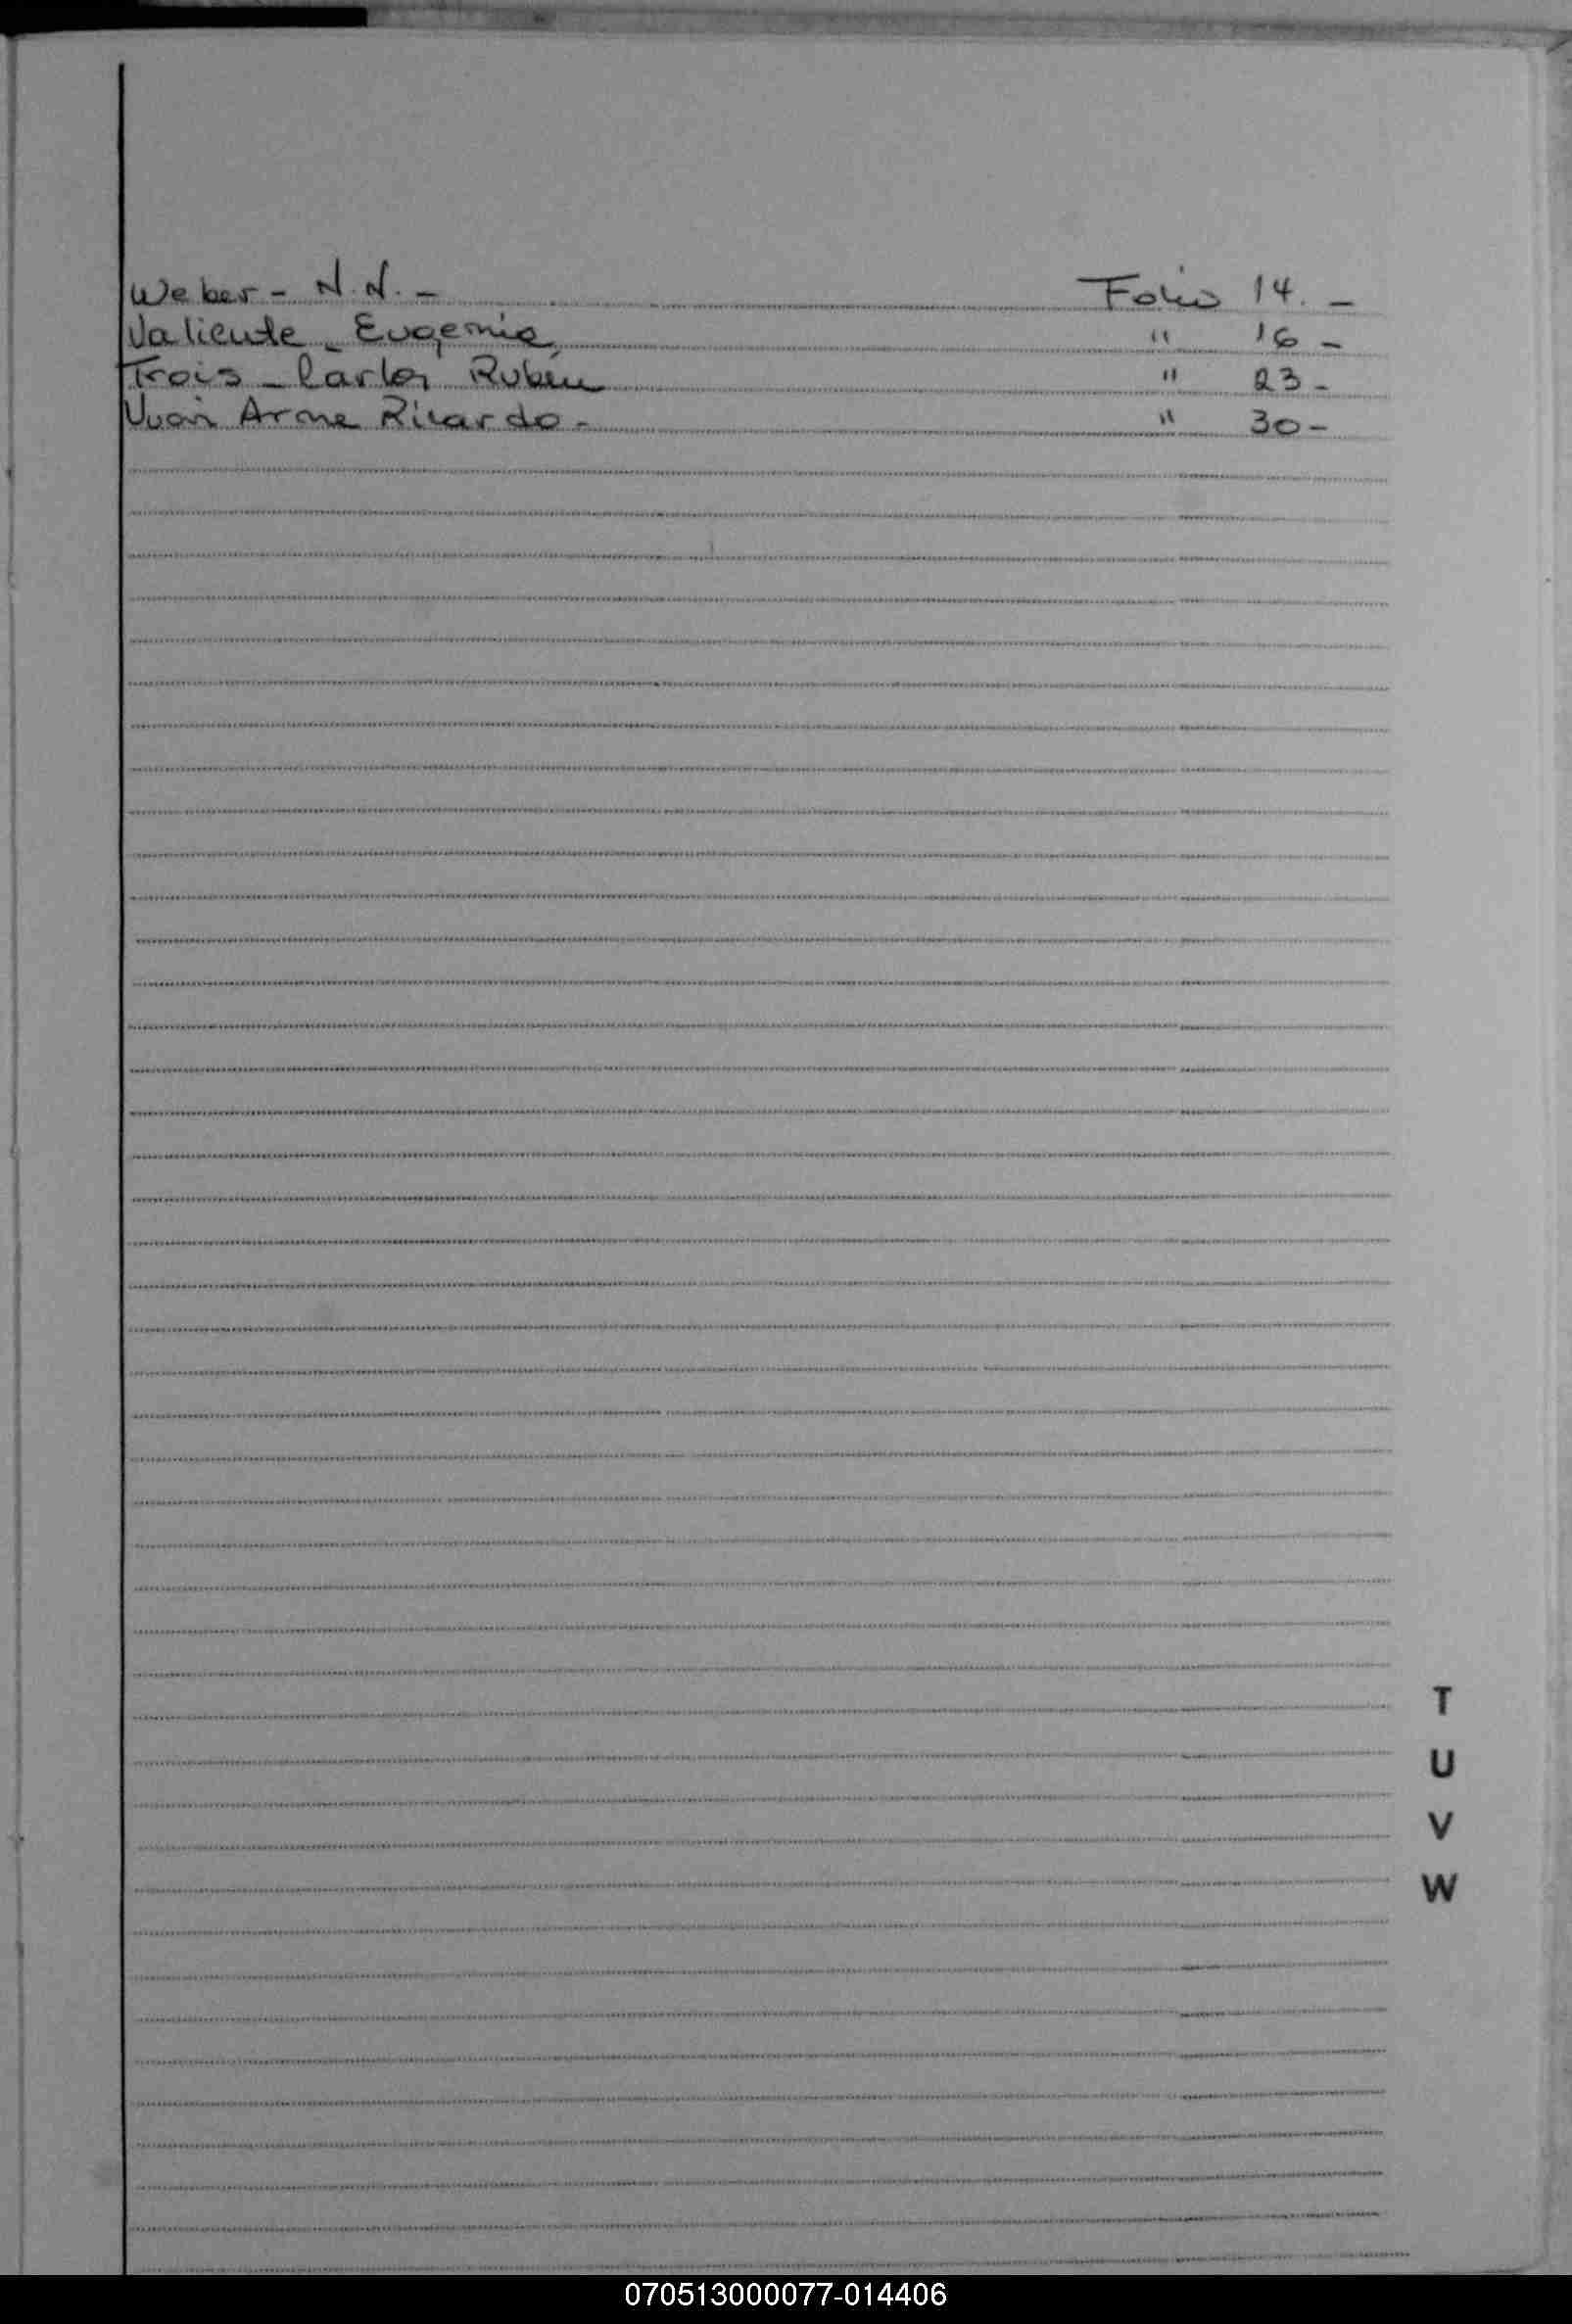 Weber - N.N. - Folio 14. -
Valiente - Eugenia " 16 -
Trois - Carlos Ruben " 23 -
Arone Ricardo - " 30 -
T
U
V
W
070513000077-014406